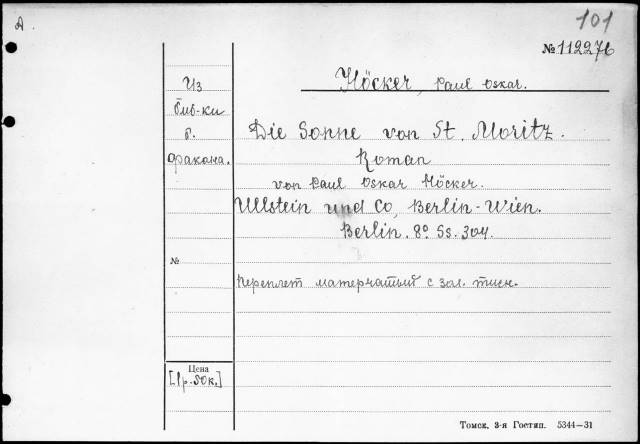 А.
101
№ 112276
Из
биб-ки
б.
Höcker, Paul Oskar.
Die Sonne von St. Moritz.
Roman
von Paul Oskar Höcker.
Ullstein und Co, Berlin-Wien.
Berlin. 8° Ss. 304.
№
Переплет матерчатый с зол. тисн.
Цена
[1р.-50к.]
Томск, 3-я Гостип. 5344—31